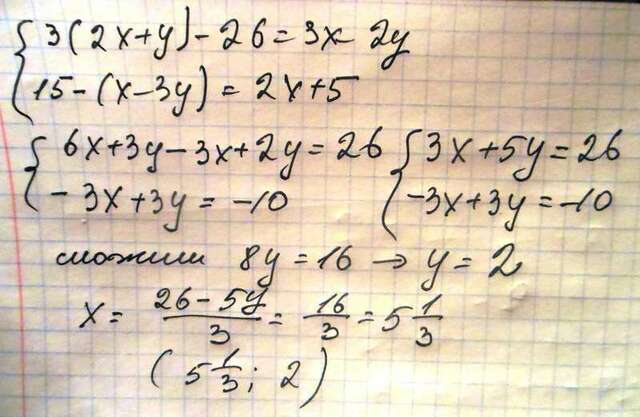 3(2x+y)-26=3x-2y
15-(x-3y)=2x+5
6x+3y-3x+2y=26 3x+5y=26
-3x+3y=-10 -3x+3y=-10
сложили 8y=16 → y=2
x= (26-5y)/3 = 16/3 = 5 1/3
(5 1/3; 2)